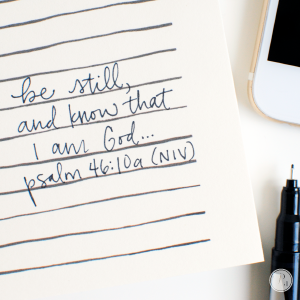 be still,
and know that
I am God...
psalm 46:10a (NIV)